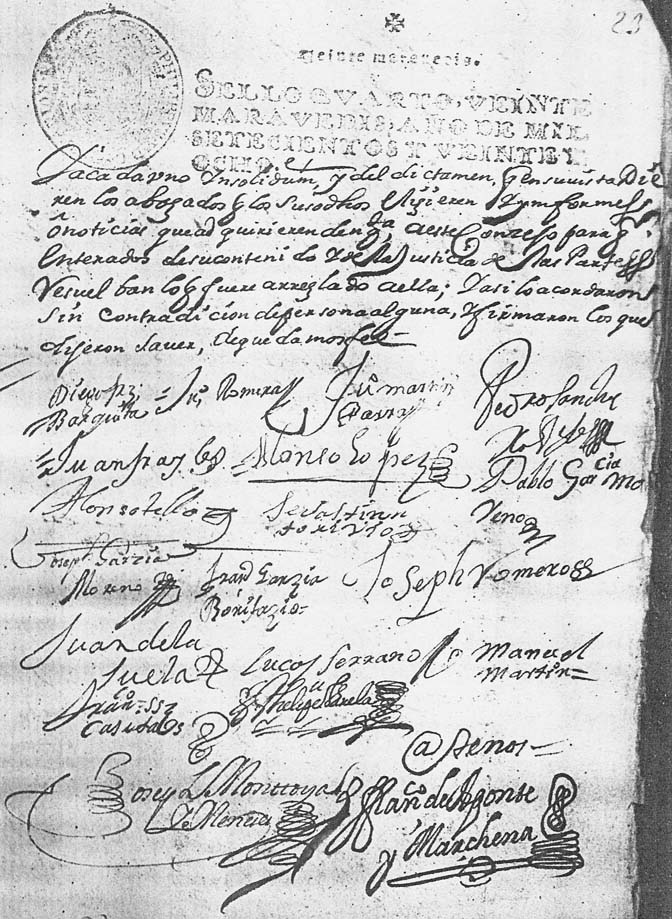 23
Veinte maravedis.
SELLO QVARTO, VEINTE
MARAVEDIS, AÑO DE MIL
SETECIENTOS Y VEINTE Y
OCHO.
Y a cada vno Insolidum, y del dictamen, q ensuvista Die
ren los abogados q los susodhos elijieren Yymformess
ònoticias que ad quirieren den qta aeste Conzejo para q
Enterados desuconteni do Y de la Justicia de las Partess
Resuel ban lo q fuere arreglado aella; Yasi lo acordaron
sin contradicion de persona alguna, Y firmaron los que
dijeron sauer, de que damos fee
Diego
Romera
Ju martin
Parra
Pedro Sanchez
Juan
Alonso Lopez
Pablo Garcia Mo
reno
Alonso tello
Sevastian
torivio
Joseph Garzia
Moreno
Fran Garzia
Bonifazio
Joseph Romero
Juan de la
Suela
Lucas Serrano
Manuel
Martin
Fran
Casitas
Phelipe Varela
@stenos
Joseph Montoya
Mendez
Franco de Aponte
y Marchena